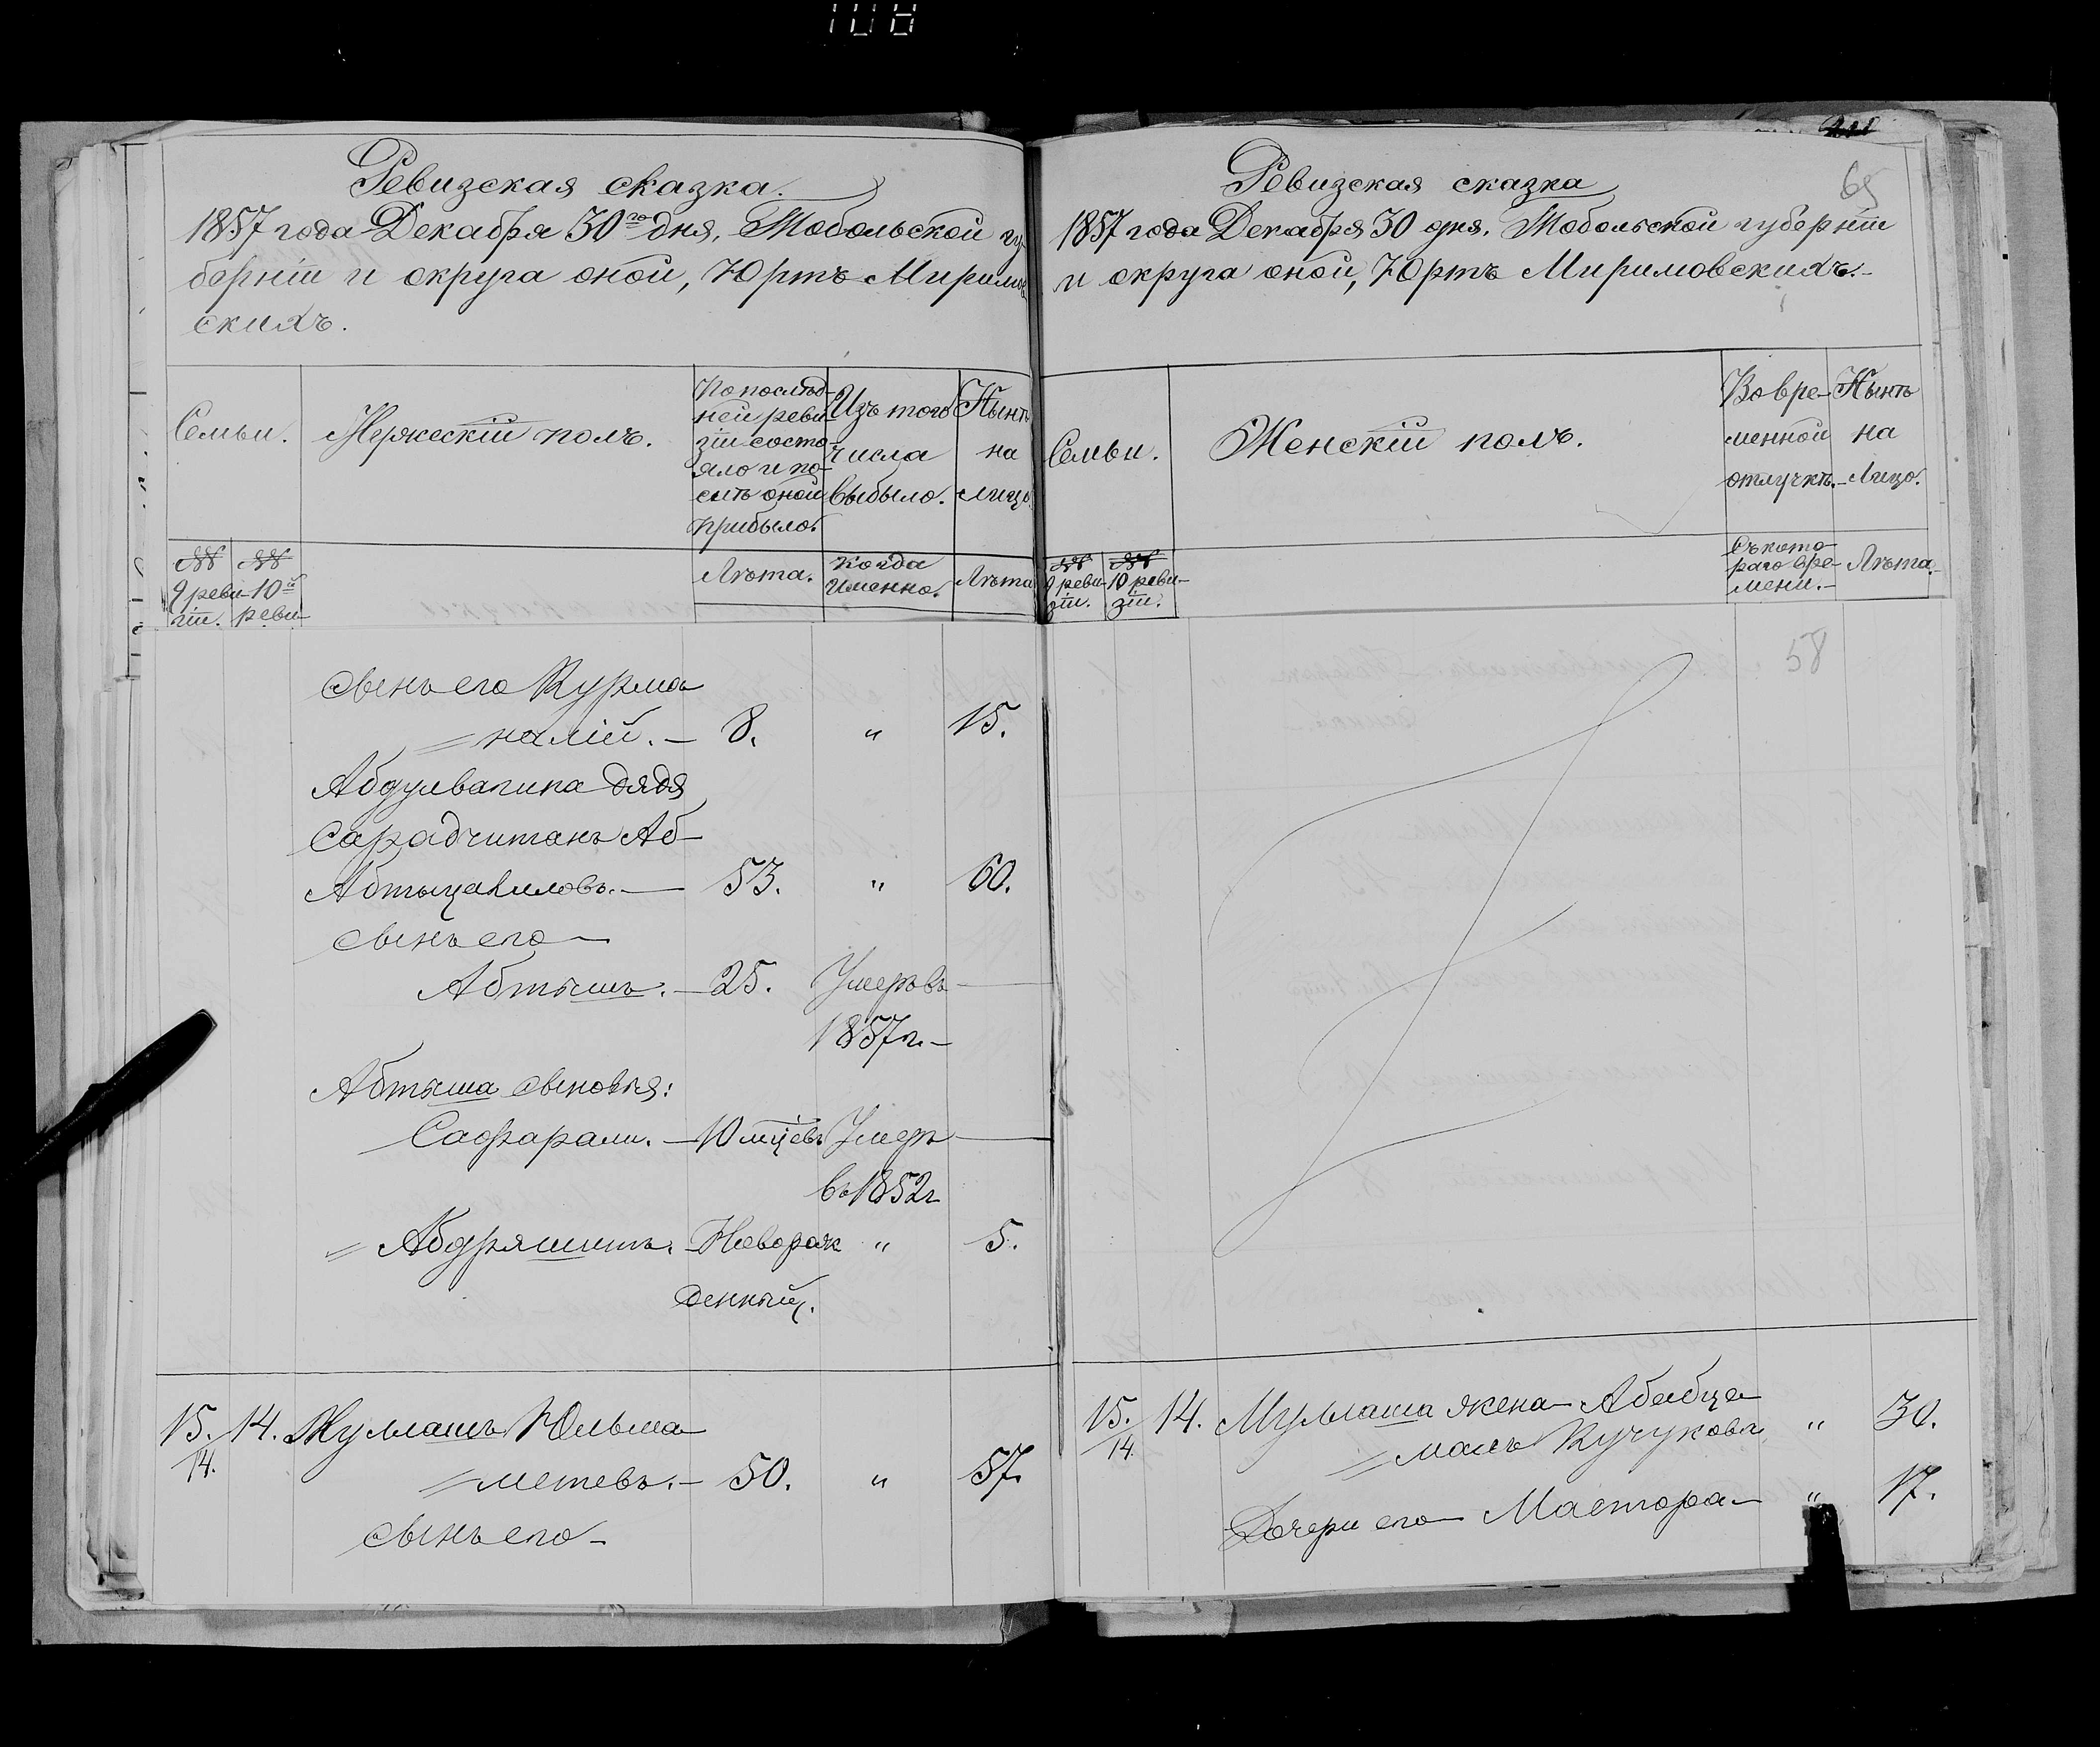 108
Ревизская сказка.
1857 года Декабря 30го дня, Тобольской гу-
берніи и округа оной, Юртъ Миримов
скихъ.
Семьи.
Мужескій полъ.
По послѣд-
ней реви-
зіи состо-
яло и по-
слѣ оной
прибыло.
Изъ того
числа
выбыло.
Нынѣ
на
лицо
№№
9 реви-
зіи.
№№
10й
реви-
Лѣта.
Когда
именно.
Лѣта
Сынъ его Курма
налій. — 8. " 15.
Абдулвагипа дядя
Сарадчитанъ Аб-
Абтыцалиловъ. — 53. " 60.
Сынъ его —
Абтышъ. — 25. Умеръ въ
1857 г. —
Абтыша сыновья:
Сафарали. — 10 мцевъ Умеръ
въ 1852 г
Абдряшитъ. Новорож "  5.
денный.
15. 14. Муллашъ Юльма
14.
метевъ. — 50. " 57.
Сынъ его —
65
Ревизская сказка
1857 года Декабря 30 дня. Тобольской губерніи
и округа оной, Юртъ Миримовскихъ. —
Семьи.
Женскій полъ.
Во вре-
менной
отлучкѣ.
Нынѣ
на
Лицо.
№№
9 реви-
зіи.
№№
10 реви-
зіи.
Съ кото-
раго вре-
мени. —
Лѣта.
58
15. 14. Муллаша жена Абабца
14.
малъ Кучукова " 30.
Дочери его Мастора — " 17.